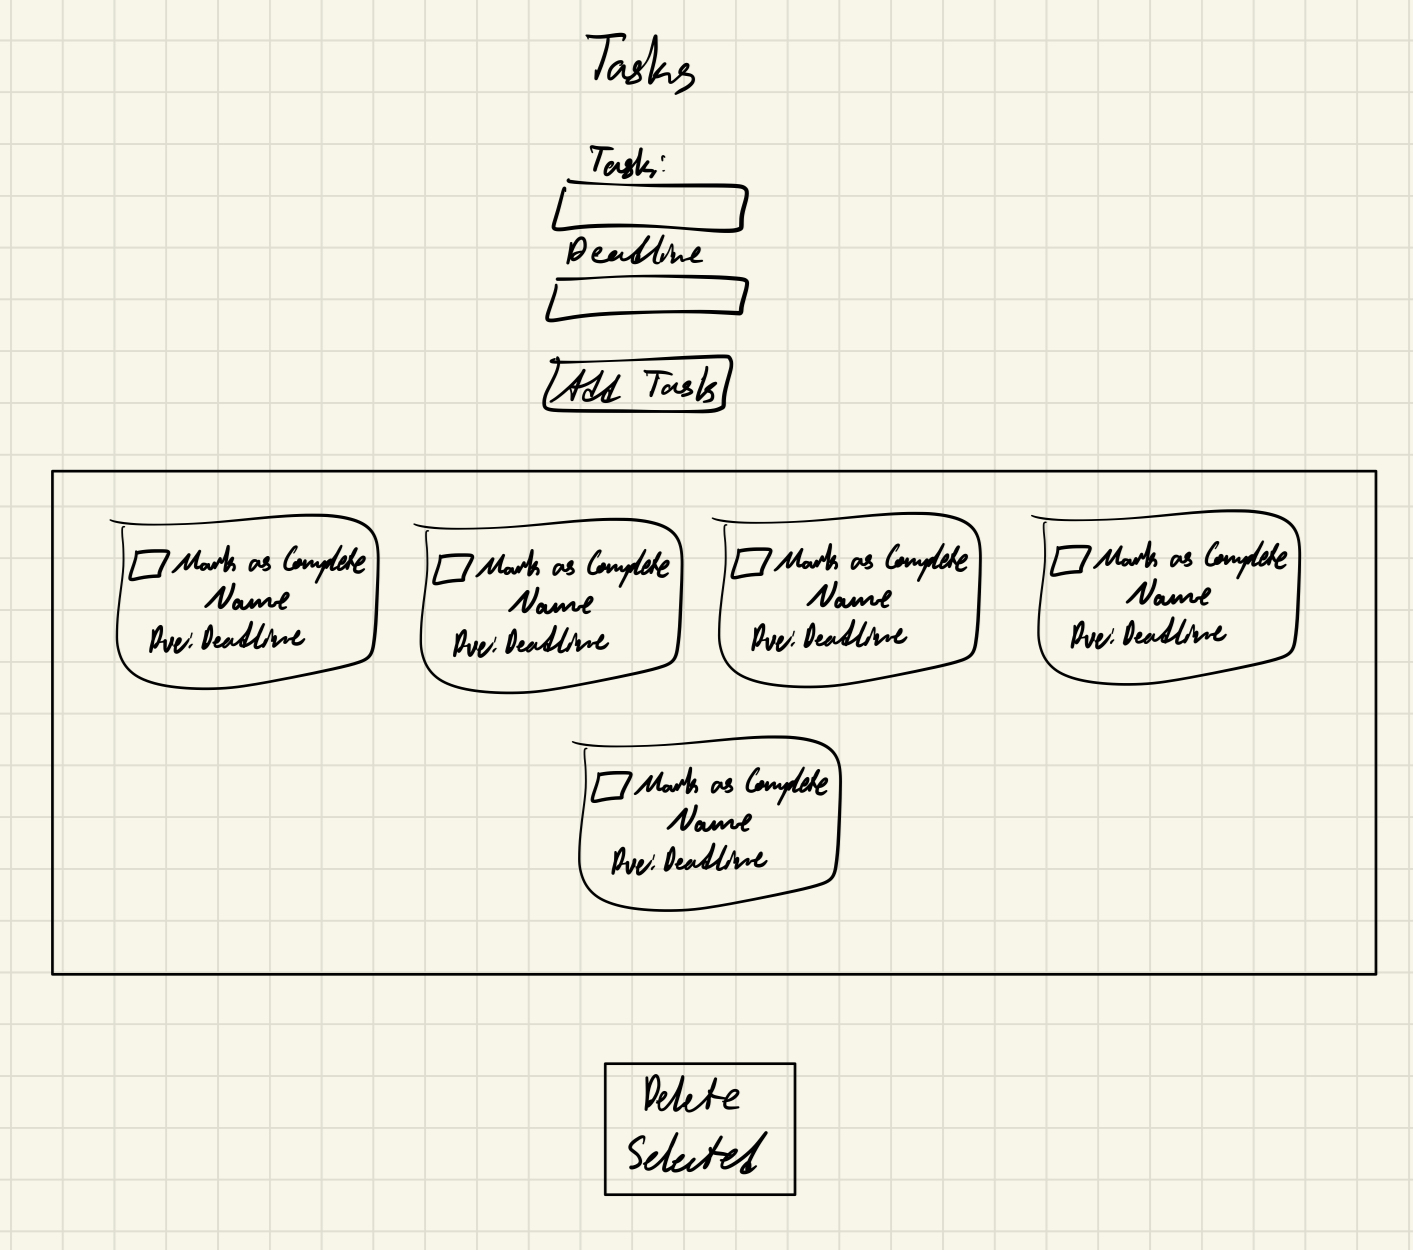 Tasks
Task:
Deadline
Add Task
Mark as Complete
Name
Due: Deadline
Mark as Complete
Name
Due: Deadline
Mark as Complete
Name
Due: Deadline
Mark as Complete
Name
Due: Deadline
Mark as Complete
Name
Due: Deadline
Delete
Selected